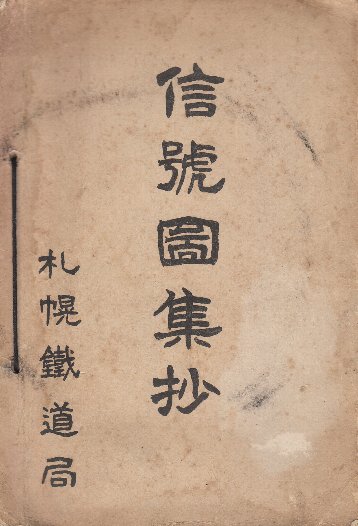 信號圖集抄
札幌鐵道局